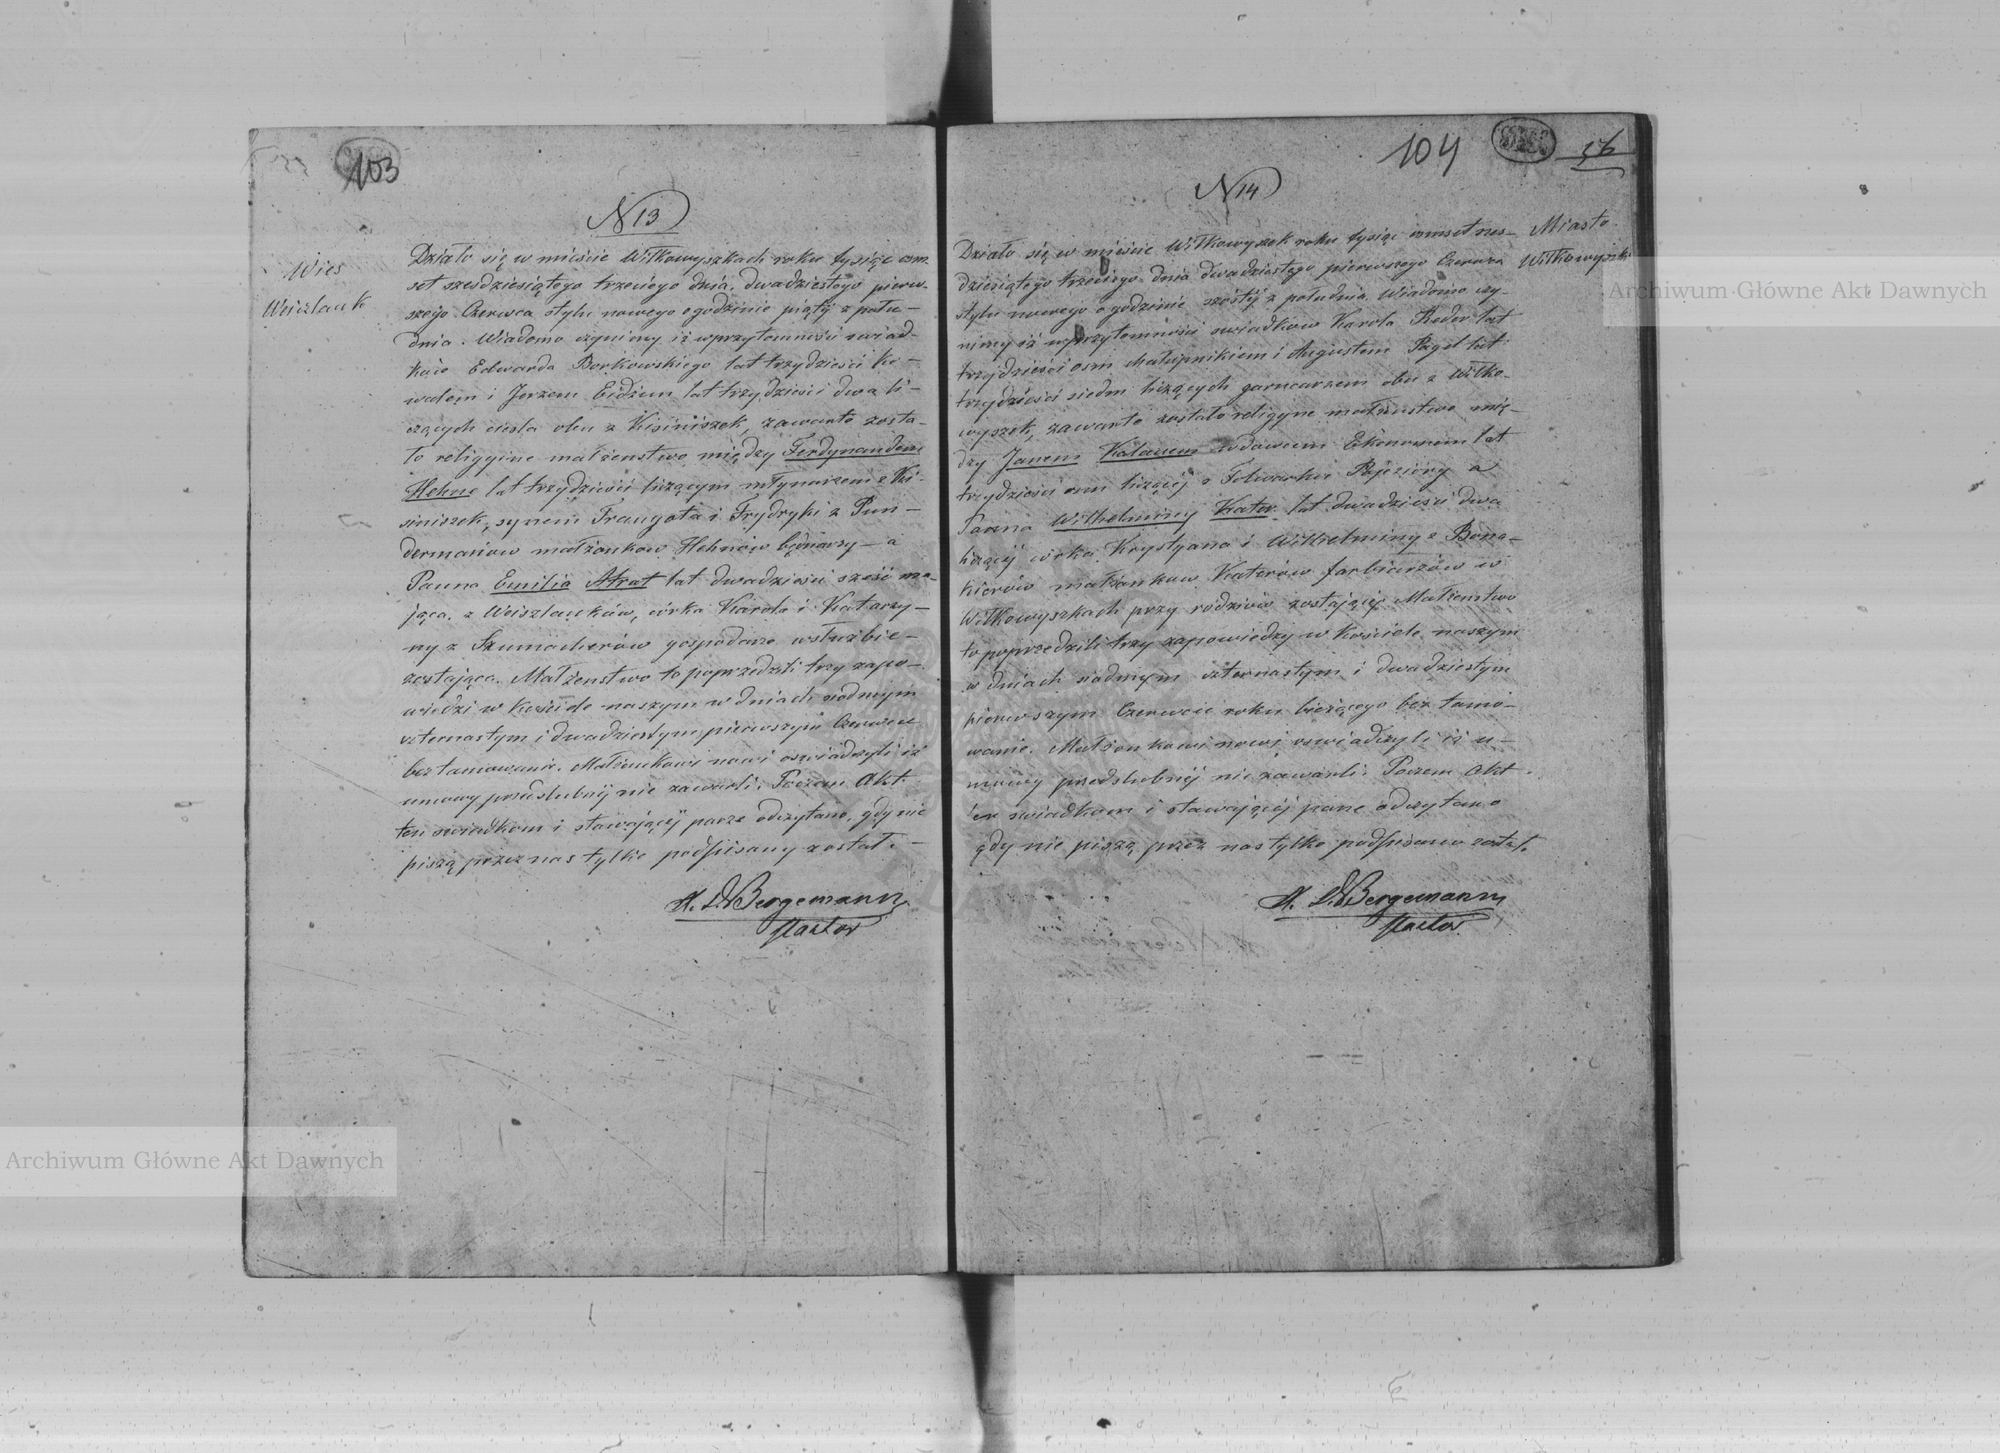 103
N 13
Wieś
Weiszlauk
Działo się w mieście Wiłkowyszkach roku tysiąc ośm
set sześdziesiątego trzeciego dnia, dwadziestego pierw-
szego Czerwca stylu nowego o godzinie piątej z połu-
dnia. Wiadomo czyniemy iż w przytomności świad-
ków Edwarda Borkowskiego lat trzydzieści ko-
walem i Jerzem Eidzim lat trzydzieści dwa li-
czących ciesla obu z Kisiniszek, zawarte zosta-
ło religyine małżeństwo między Ferdynandem
Hehne lat trzydzieści liczącym młynarzem z Ki-
siniszek, synem Traugota i Frydryki z Pun-
dermanów małżonków Hehnów bednarzy — a
Panna Emilia Atrat lat dwadzieści sześć ma-
jąca, z Weiszlauków, córka Karola i Katarzy-
ny z Szumacherów gospodarz w służbie
zostająca. Małżeństwo to poprzedzili trzy zapo-
wiedzi w kościele naszym w dniach siódmym
czternastym i dwadziestym pierwszym Czerwca
bez tamowania. Małżonkowi nowi oswiadczyli iż
umowy przedslubnij nie zawarli. Poczem Akt
ten swiadkom i stawającéj parze odczytano, gdy nie
piszą przez nas tylko podpisany został. —
H. L. Bergemann
Pastor
104
56
N 14
Miasto
Wiłkowyszki
Działo się w mieście Wiłkowyszek roku tysiąc ośmset szes-
dziesiątego trzeciego dnia dwadziestego pierwszego Czerwca
stylu nowego o godzinie szóstéj z południa. Wiadomo czy-
niemy iż w przytomności swiadków Karola Reder lat
trzydzieści osm i Augustem Pagel lat
trzydzieści siedm liczących garncarzem obu z Wiłko-
wyszek, zawarte zostało religyne małżeństwo mię-
dzy Janem Kalauem wdowcem Ekonomem lat
trzydzieści osm liczącéj z Folwarku Pojeziory a
Panna Wilhelminy Kater lat dwadzieści dwa
liczącéj córka Krystyana i Wilhelminy z
małżonków Katerów farbiarzów w
Wiłkowyszkach przy rodziców zostającéj. Małżenstwo
to poprzedzili trzy zapowiedzy w Kościele naszym
w dniach siódmym czternastym i dwadziestym
pierwszym Czerwcie roku bieżącego bez tamo-
wania. Małżonkowi nowi oswiadczyli iż u-
mowy przedslubnéj nie zawarli. Poczem Akt
ten swiadkom i stawającéj parze odczytano
gdy nie piszą przez nas tylko podpisano został.
H. L. Bergemann
Pastor
Archiwum Główne Akt Dawnych
Archiwum Główne Akt Dawnych